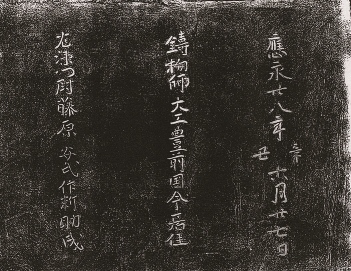 應永廿八年辛丑六月廿七日
鋳物師大工豊前国今居住
左衛門尉藤原安氏作新助成